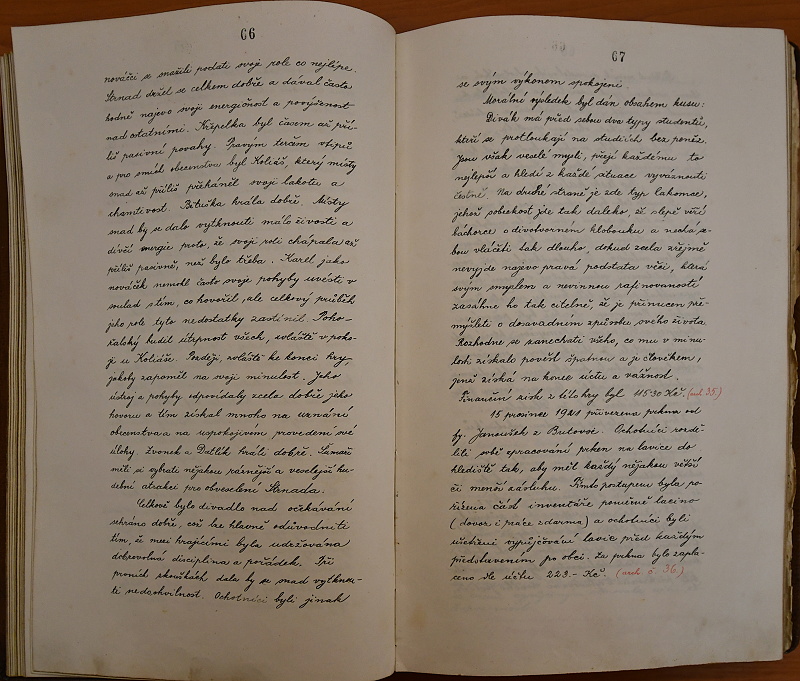 66
nováčci se snažili podati svoje role co nejlépe.
Strnad držel se celkem dobře a dával často
hodně najevo svoji energičnost a povýšenost
nad ostatními. Křepelka byl časem až pří-
liš pasivní povahy. Pravým terčem vtipů
a pro smích obecenstva byl Koliáš, který místy
snad až příliš přeháněl svoji lakotu a
chamtivost. Bětuška hrála dobře. Místy
snad by se dalo vytknouti málo živosti a
dívčí energie proto, že svoji roli chápala až
příliš pasivně, než bylo třeba. Karel jako
nováček nemohl často svoje pohyby uvésti v
soulad s tím, co hovořil, ale celkový průběh
jeho role tyto nedostatky zastínil. Poho-
řalský budil útrpnost všech, zvláště v poko-
ji u Koliáše. Později, zvláště ke konci hry,
jakoby zapoměl na svoji minulost. Jeho
ústroj a pohyby odpovídaly zcela dobře jeho
hovoru a tím získal mnoho na uznání
obecenstva a na uspokojivém provedení své
úlohy. Zvonek a Datlík hráli dobře. Šumaři
měli si vybrati nějakou různější a veselejší hu-
dební atrakci pro obveselení Strnada.
Celkově bylo divadlo nad očekávání
sehráno dobře, což lze hlavně odůvodniti
tím, že mezi hrajícími byla udržována
dobrovolná disciplina a pořádek. Při
prvních skouškách dala by se snad vytknou-
ti nedochvilnost. Ochotníci byli jinak
67
se svým výkonem spokojeni.
Morální výsledek byl dán obsahem kusu:
Divák má před sebou dva typy studentů,
kteří se protloukají na studiích bez peněz.
Jsou však veselé mysli, přejí každému to
nejlepší a hledí z každé situace vyváznouti
čestně. Na druhé straně je zde typ lakomce,
jehož sobeckost jde tak daleko, že slepě věří
báchorce o divotvorném klobouku a nechá se-
bou vláčeti tak dlouho, dokud zcela zřejmě
nevyjde najevo pravá podstata věci, která
svým smyslem a nevinnou rafinovaností
zasáhne ho tak citelně, že je přinucen pře-
mýšleti o dosavadním způsobu svého života.
Rozhodne se zanechati všeho, co mu v minu-
losti získalo pověst špatnou a je člověkem,
jenž získá na konec úctu a vážnost.
Finanční zisk z této hry byl 115·30 Kč. (arch 35.)
15 prosince 1921 přivezena prkna od
fy. Janoušek z Butovsi. Ochotníci rozdě-
lili sobě zpracování prken na lavice do
hlediště tak, aby měl každý nějakou větší
či menší zásluhu. Tímto postupem byla po-
řízena část inventáře poměrně lacino
(dovoz i práce zdarma) a ochotníci byli
ušetřeni vypůjčování lavic před každým
představením po obci. Za prkna bylo zapla-
ceno dle účtu 223.- Kč. (arch č. 36.)